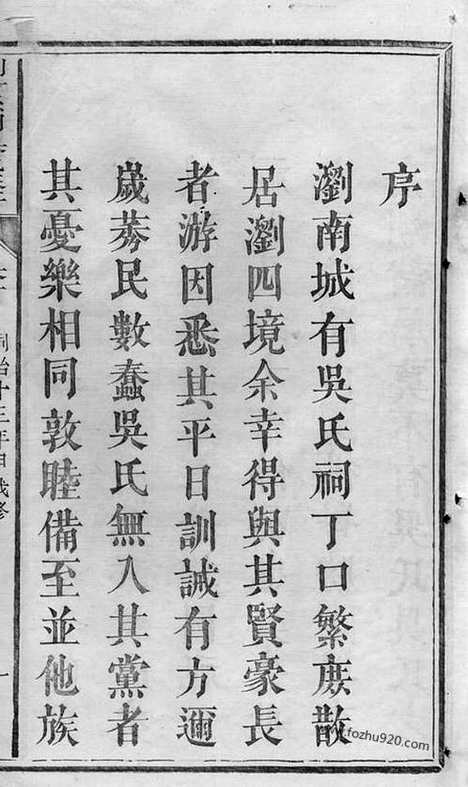 序
瀏南城有吳氏祠丁口繁庶散
居瀏四境余幸得與其賢豪長
者游因悉其平日訓誡有方邇
歲莠民數蠢吳氏無入其黨者
其憂樂相同敦睦備至並他族
同治十三年甲戌修
fozhu920.com